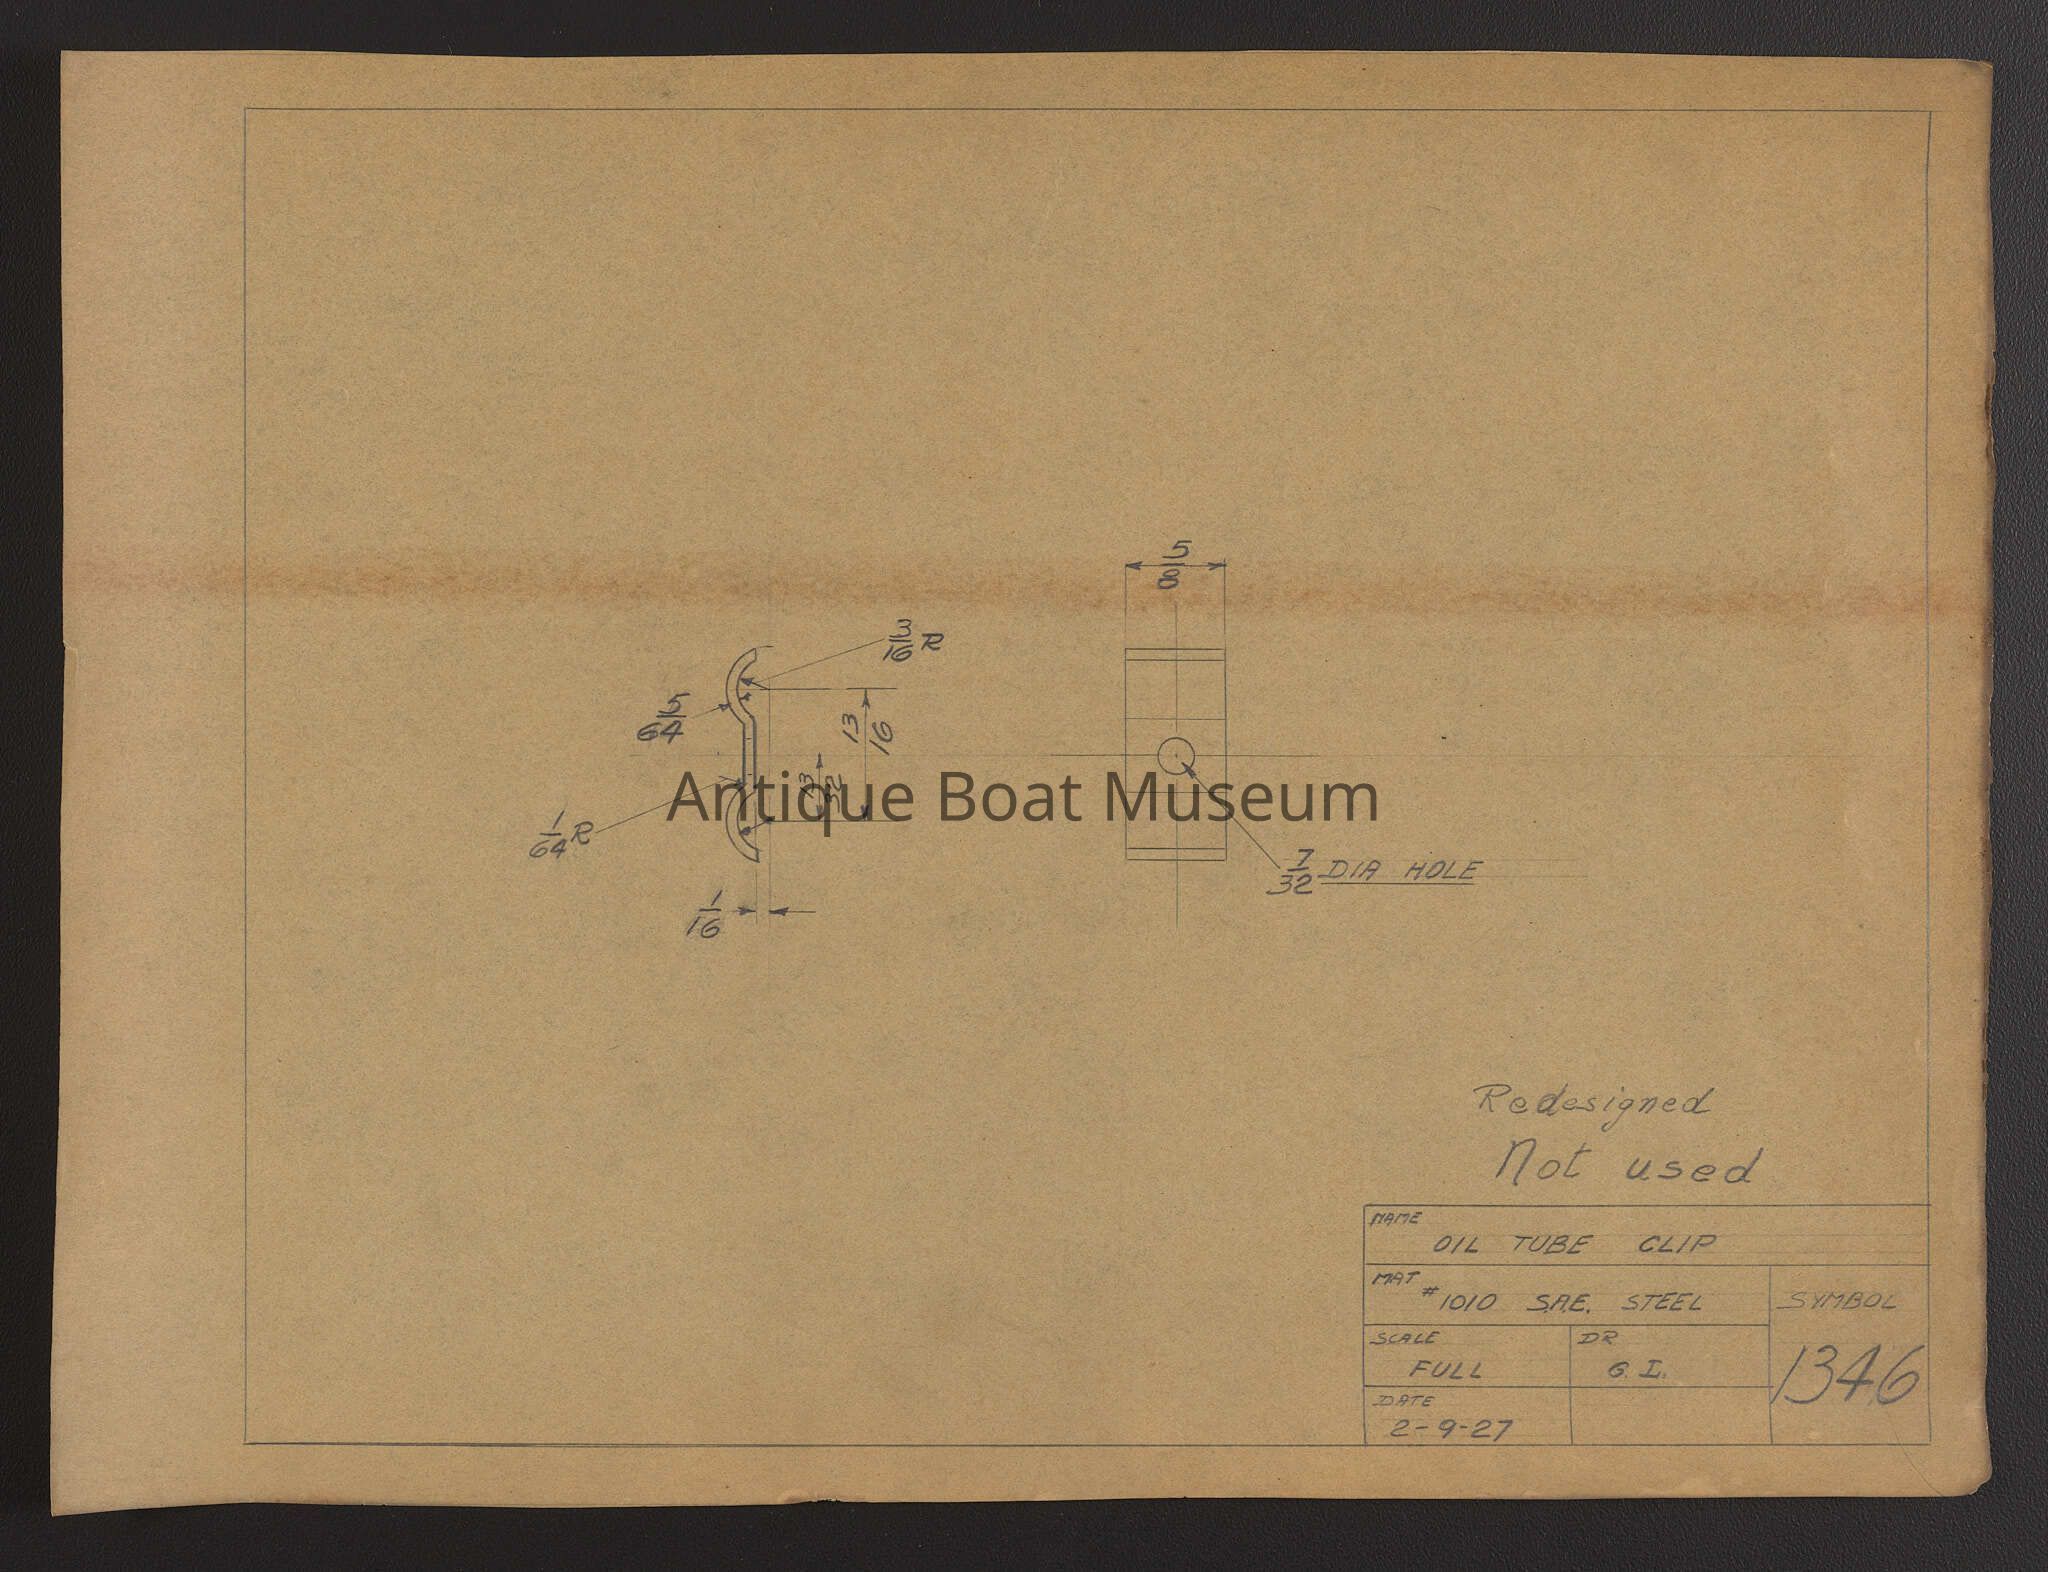 5/8
3/16 R
5/64
13/16
13/32
Antique Boat Museum
1/64 R
7/32 DIA HOLE
1/16
Redesigned
Not used
NAME
OIL TUBE CLIP
MAT
#1010 S.A.E. STEEL
SYMBOL
1346
SCALE
FULL
DR
G. I.
DATE
2-9-27